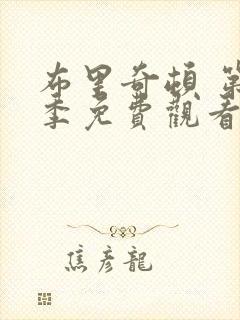 布里奇頓 第
季免費觀看
焦彥龍